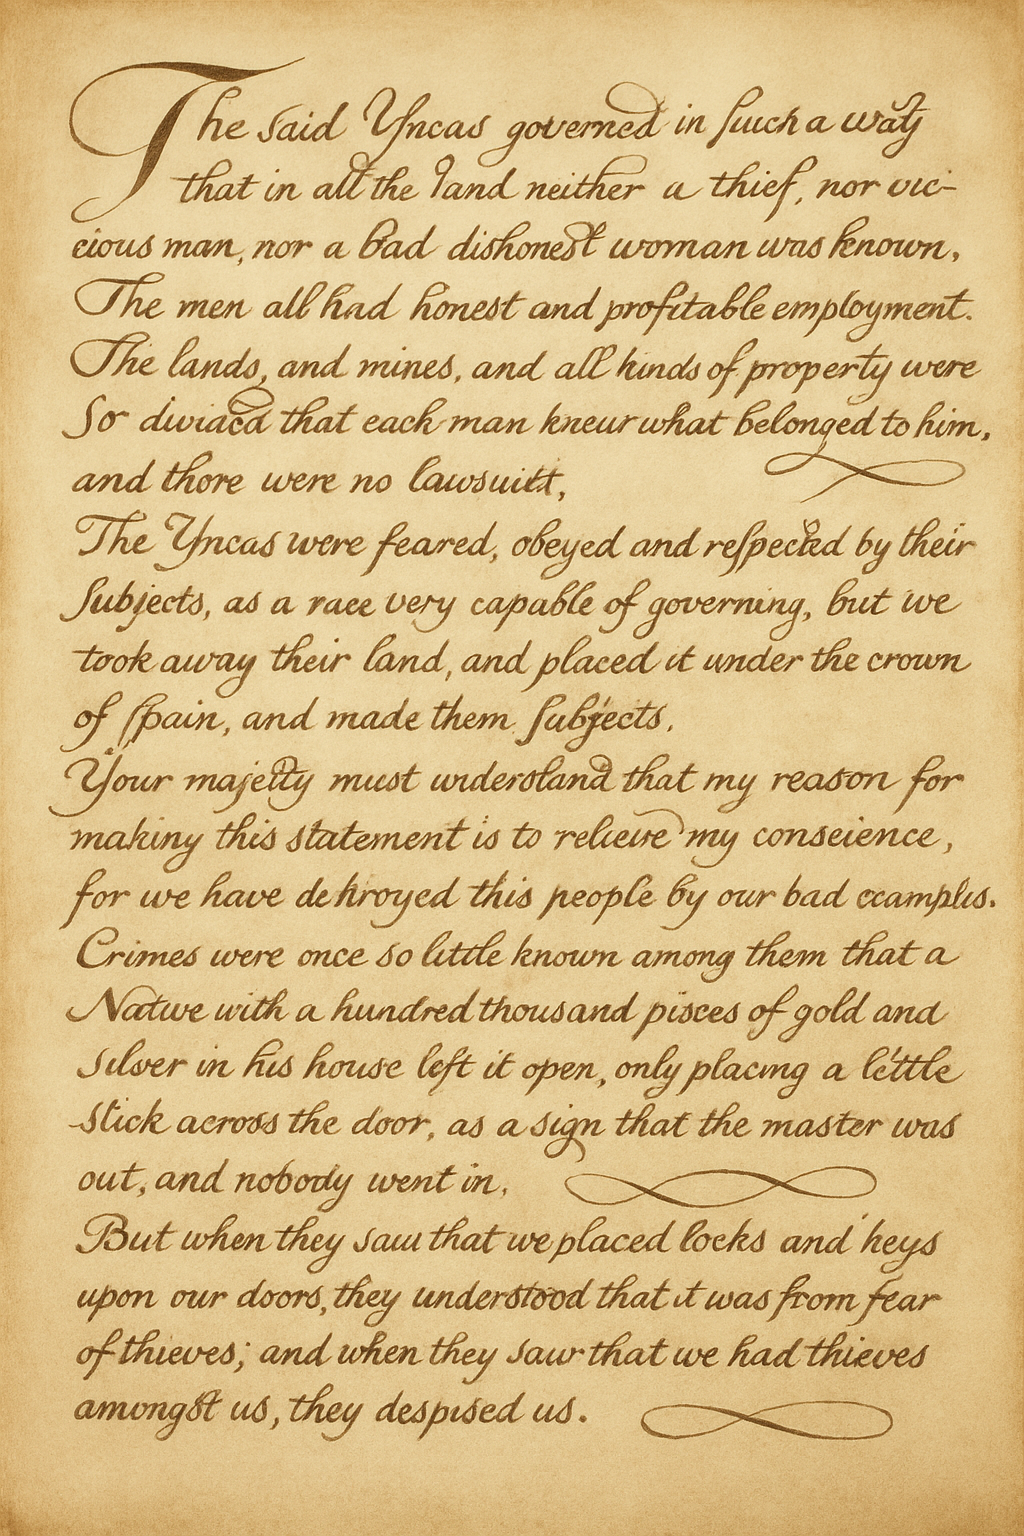 The said Yncas governed in such a way
that in all the land neither a thief, nor vic-
cious man, nor a bad dishonest woman was known.
The men all had honest and profitable employment.
The lands, and mines, and all kinds of property were
so divided that each man knew what belonged to him,
and thore were no lawsuitt,
The Yncas were feared, obeyed and respected by their
subjects, as a race very capable of governing, but we
took away their land, and placed it under the crown
of Spain, and made them subjects.
Your majesty must understand that my reason for
making this statement is to relieve my conseience,
for we have destroyed this people by our bad examples.
Crimes were once so little known among them that a
Native with a hundred thousand pisces of gold and
silver in his house left it open, only placing a little
stick across the door, as a sign that the master was
out, and nobody went in.
But when they saw that we placed locks and keys
upon our doors, they understood that it was from fear
of thieves; and when they saw that we had thieves
amongst us, they despised us.